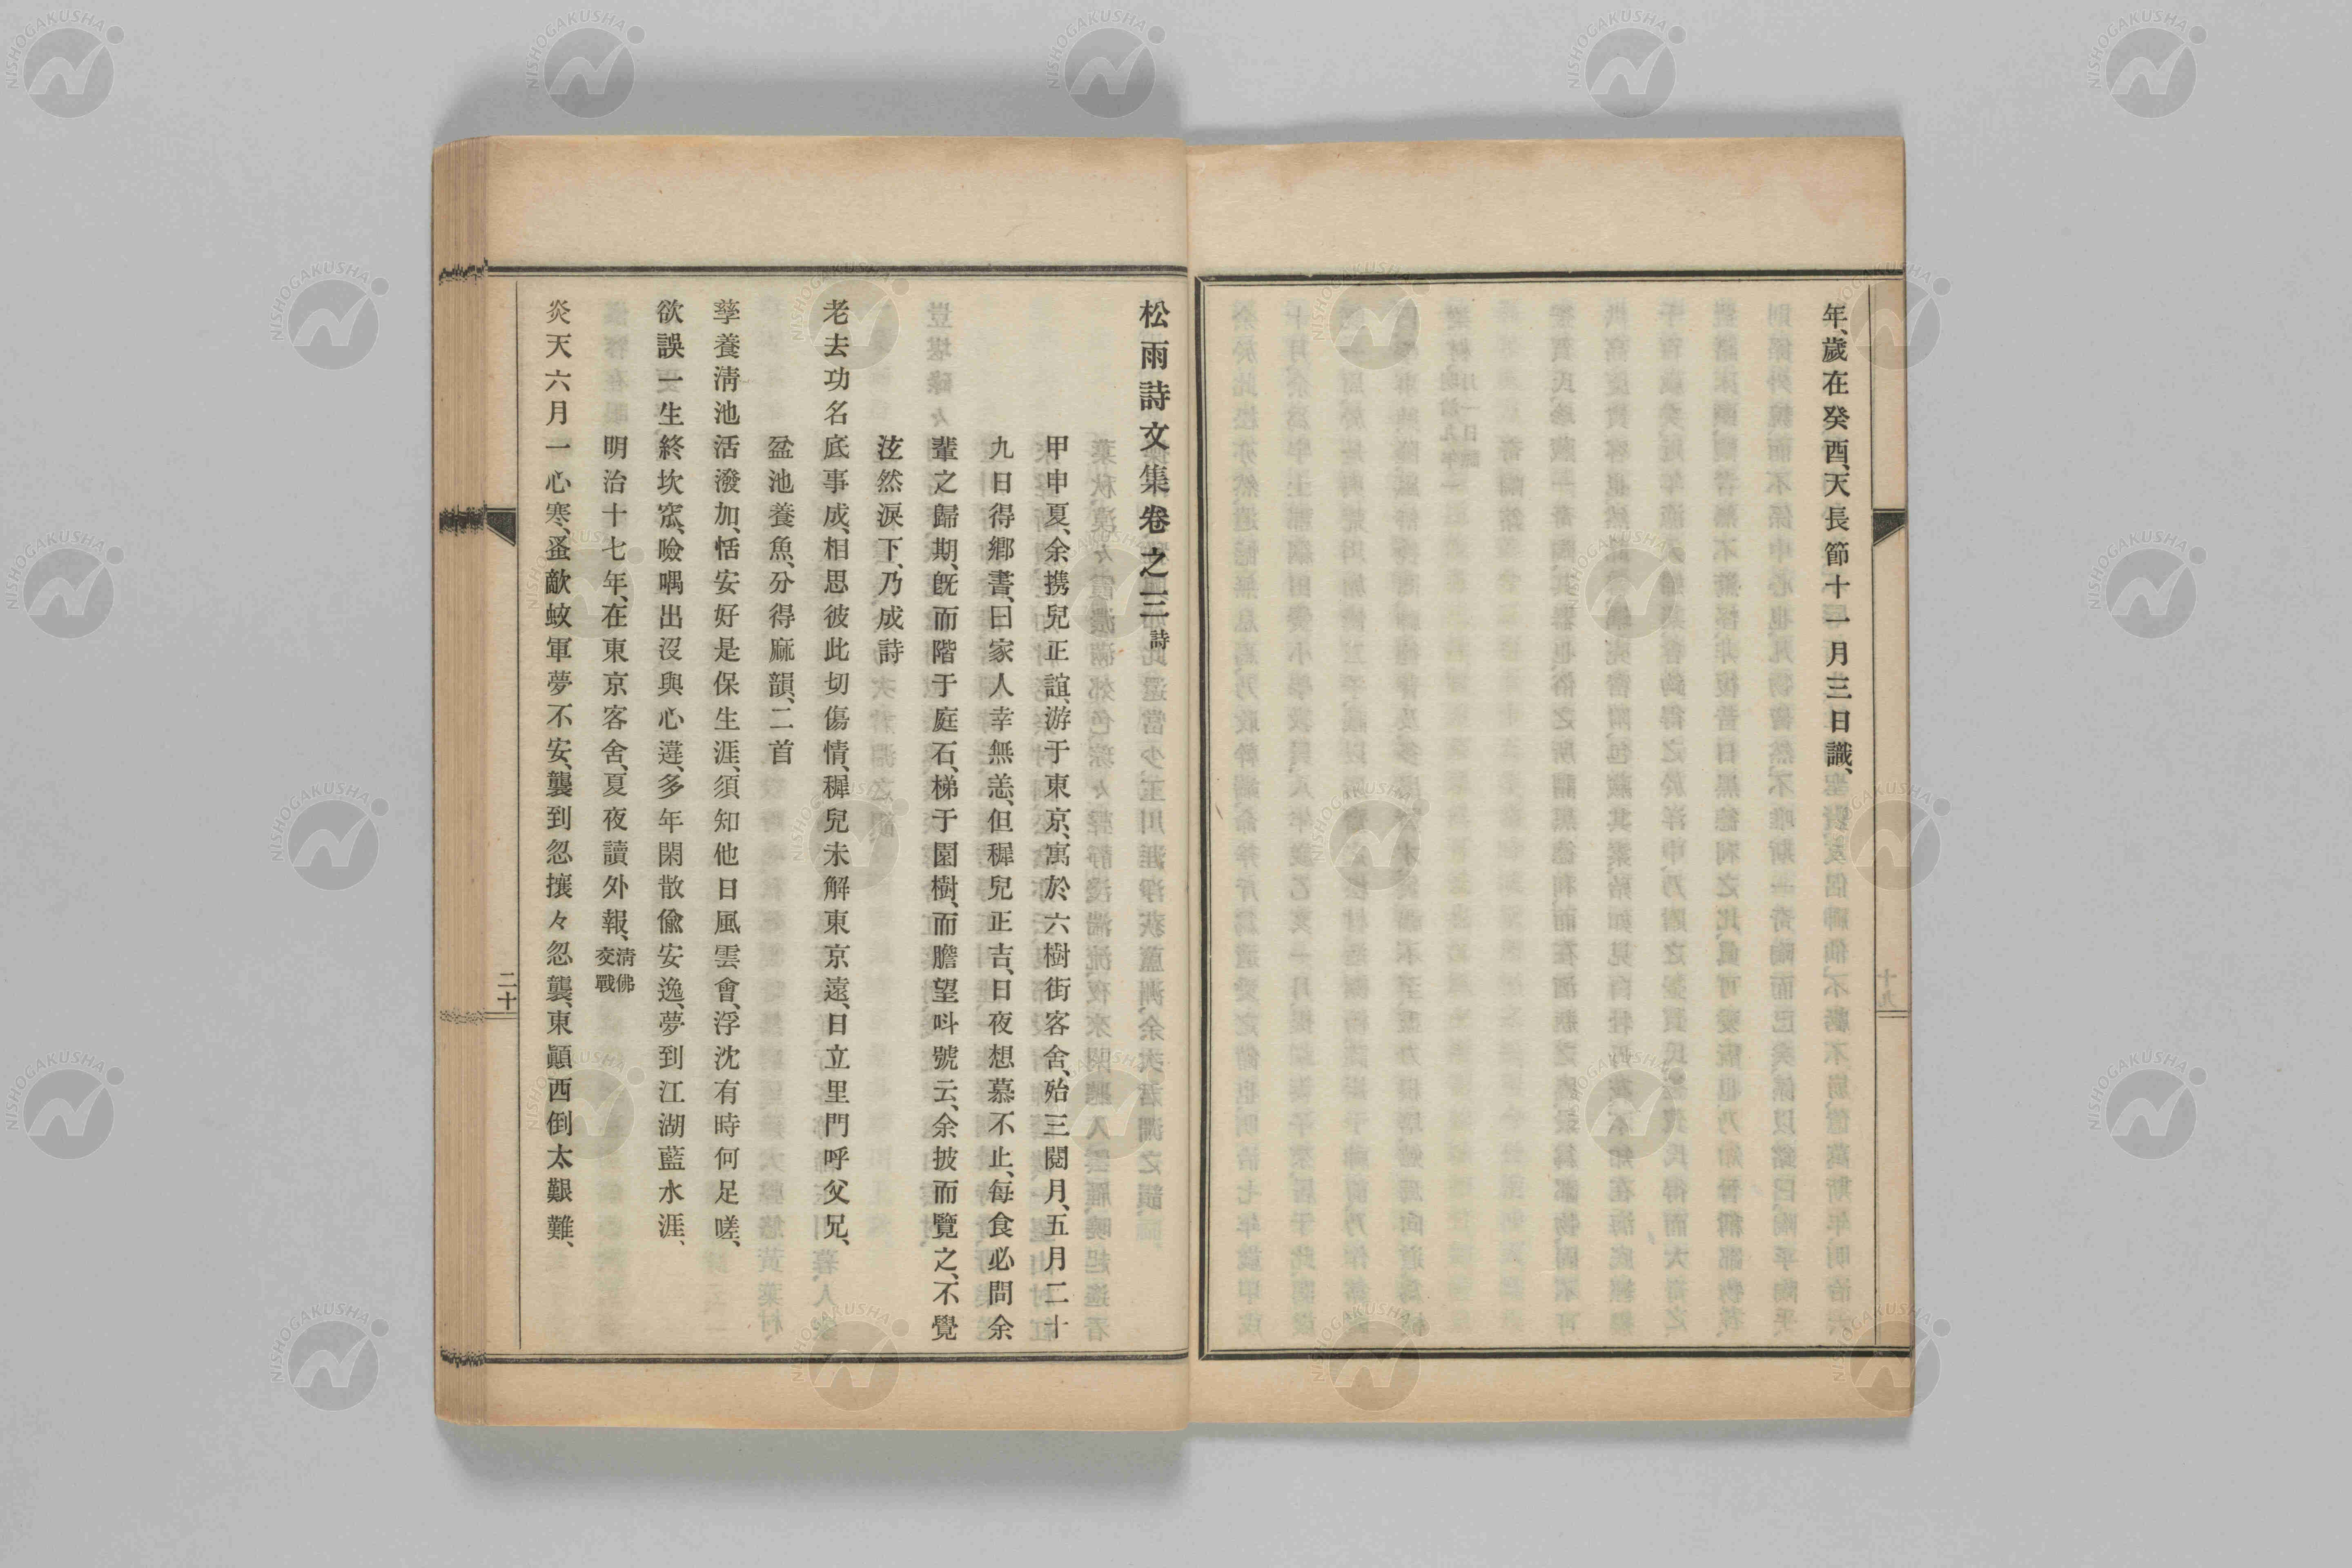 年、歲在癸酉、天長節十一月三日識、
十九
松雨詩文集卷之三 詩
甲申夏、余携兒正誼、游于東京、寓於六樹街客舍、殆三閱月、五月二十
九日得鄉書、曰家人幸無恙、但穉兒正吉、日夜想慕不止、每食必問余
輩之歸期、旣而階于庭石、梯于園樹、而膽望呌號云、余披而覽之、不覺
泫然淚下、乃成詩
老去功名底事成、相思彼此切傷情、穉兒未解東京遠、日立里門呼父兄、
盆池養魚、分得麻韻、二首
孳養淸池活潑加、恬安好是保生涯、須知他日風雲會、浮沈有時何足嗟、
欲誤一生終坎窊、噞喁出沒與心違、多年閑散偸安逸、夢到江湖藍水涯、
明治十七年、在東京客舍、夏夜讀外報、淸佛交戰
炎天六月一心寒、蚤敵蚊軍夢不安、襲到忽攘々忽襲、東顚西倒太艱難、
二十
NISHOGAKUSHA